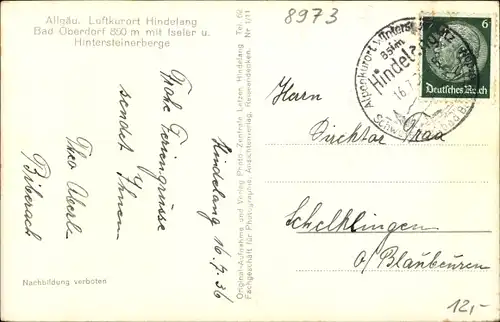 Allgäu. Luftkurort Hindelang
Bad Oberdorf 850 m mit Iseler u.
Hintersteinerberge
8973
Hindelang 16.7.36
Frohe Feriengrüsse
sendet Ihnen
Theo Aberl
Biberach
Nachbildung verboten
Original-Aufnahme und Verlag Photo-Zentrale Letzen, Hindelang Tel. 62
Fachgeschäft für Photographie, Ansichtenverlag, Reiseandenken. Nr 1/11
Alpenkurort Hinterstein
Hindelang
16.7.
6
Deutsches Reich
Herrn
Direktor
Schelklingen
o/ Blaubeuren
12,-